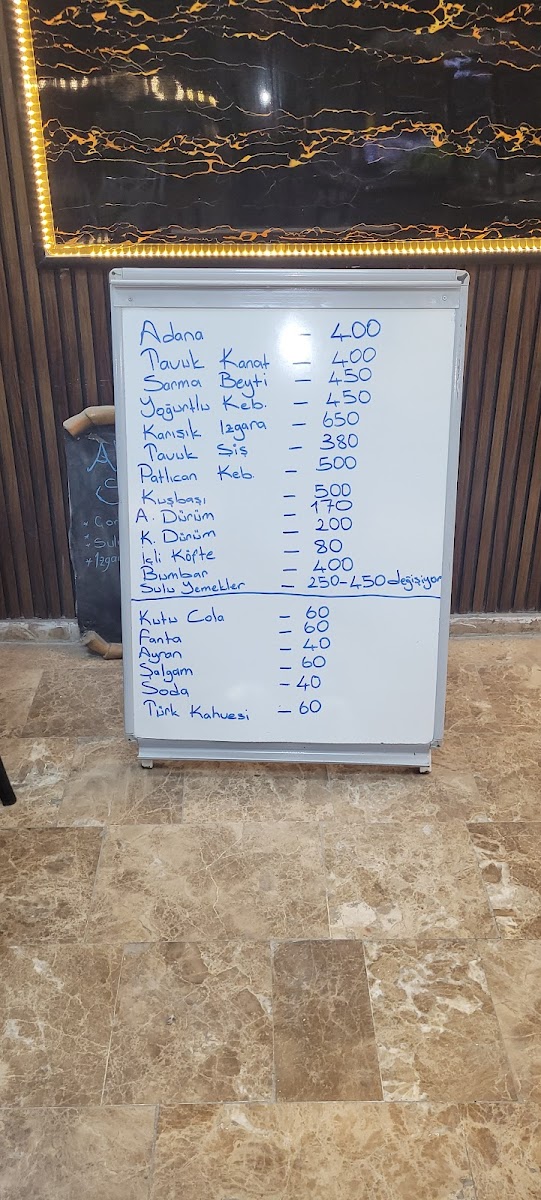 Adana - 400
Tavuk Kanat - 400
Sarma Beyti - 450
Yoğurtlu Keb. - 450
Karışık Izgara - 650
Tavuk Şiş - 380
Patlıcan Keb. - 500
Kuşbaşı - 500
A. Dürüm - 170
K. Dürüm - 200
İçli Köfte - 80
Bumbar - 400
Sulu Yemekler - 250-450 değişiyor
Kutu Cola - 60
Fanta - 60
Ayran - 40
Şalgam - 60
Soda - 40
Türk Kahvesi - 60